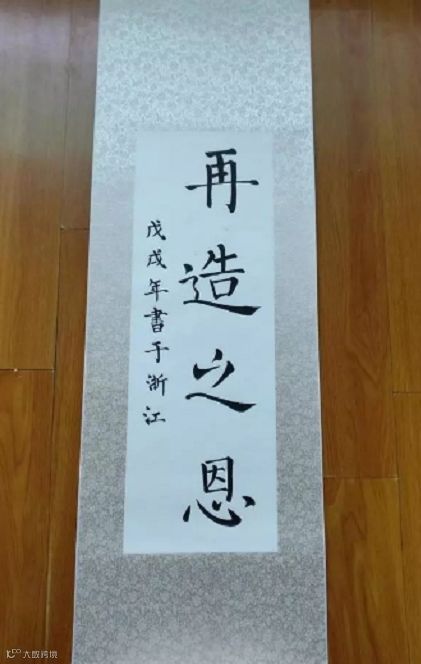 再造之恩
戊戌年書于浙江
大数跨境